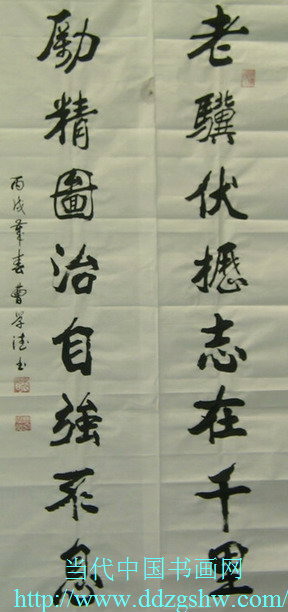 老驥伏櫪志在千里
勵精圖治自強不息
丙戌肇春 曹学德书
当代中国书画网
http://www.ddzgshw.com/